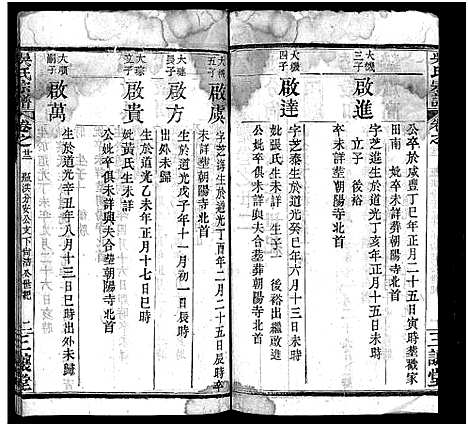 吳氏宗譜
公卒於咸豐丁巳年正月二十五日寅時塟戴家
田南 妣卒未詳塟朝陽寺北首
大機三子
啟進
字芝進生於道光丁亥年正月二十五日未時
立子 後裕
公妣卒未詳塟朝陽寺北首
大機四子
啟達
字芝泰生於道光癸巳年六月十三日未時
妣張氏生未詳 生子一 後裕出繼啟進
公妣卒俱未詳與夫合塟葬朝陽寺北首
三讓堂
大機五子
啟虞
字芝 生於道光丁酉年二月二十五日辰時卒
未詳塟朝陽寺北首
大 長子
啟方
生於道光戊子年十一月初一日辰時
出外未歸
大 立子
啟貴
生於道光乙未年正月十七日巳時
妣黃氏生未詳
公妣卒俱未詳與夫合塟朝陽寺北首
大順嗣子
啟萬
生於道光辛丑年八月十三日巳時出外未歸
吳氏宗譜
三讓堂